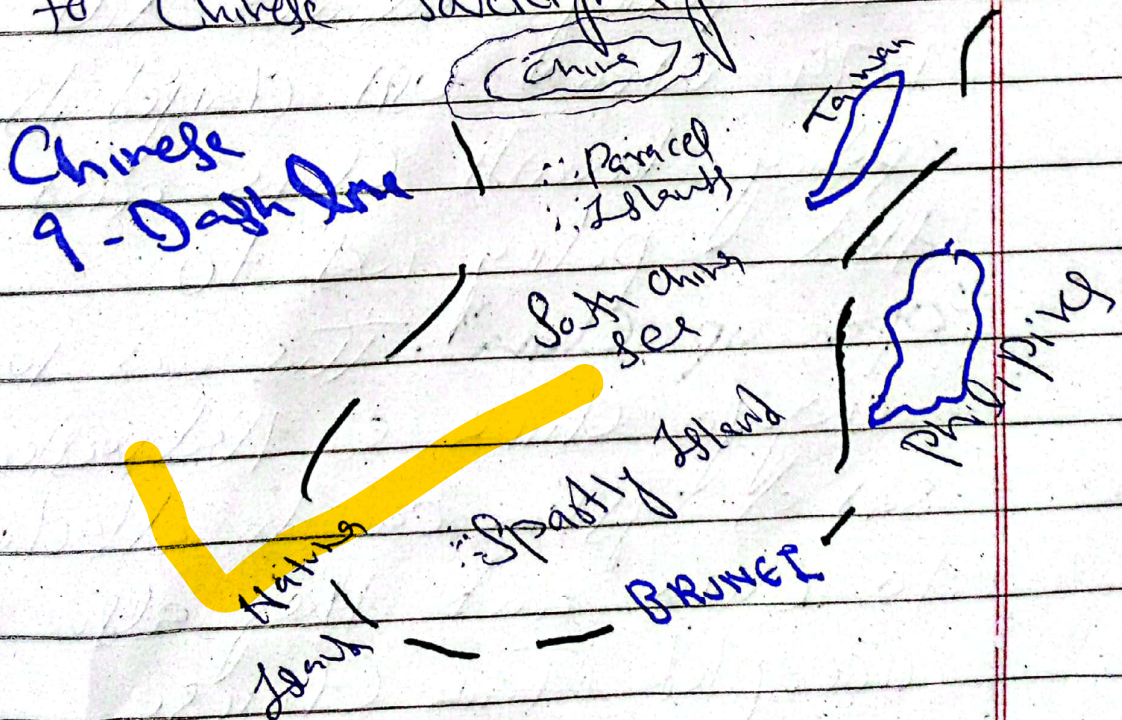 to Chinese
China
Taiwan
Chinese
9-Dash line
Paracel
Islands
South China
Sea
Philipines
Spratly Island
Natuna
Island
BRUNEI